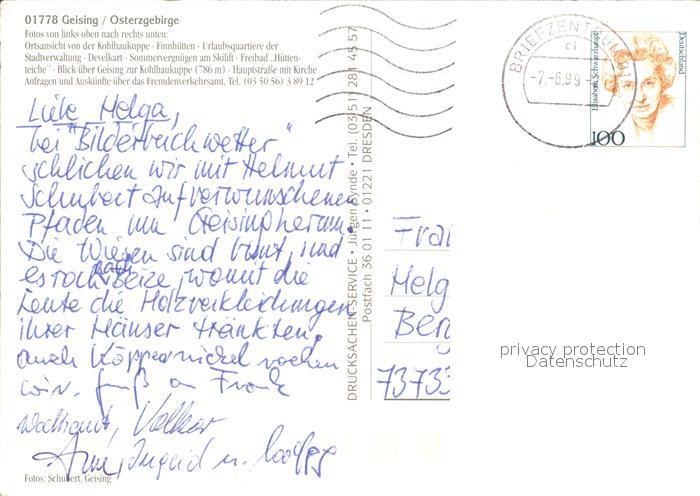 01778 Geising / Osterzgebirge
Fotos von links oben nach rechts unten:
Ortsansicht von der Kohlhaukuppe · Finnhütten · Urlaubsquartiere der
Stadtverwaltung · Develkart · Sommervergnügen am Skilift · Freibad „Hütten-
teiche" · Blick über Geising zur Kohlhaukuppe (786 m) · Hauptstraße mit Kirche
Anfragen und Auskünfte über das Fremdenverkehrsamt, Tel. (03 50 56) 3 89 12
Liebe Helga,
bei "Bilderbuchwetter"
schlichen wir mit Helmut
Schubert auf verwunschenen
Pfaden um Geising herum.
Die Wiesen sind bunt, und
es roch nach Beize, womit die
Leute die Holzverkleidungen
ihrer Häuser tränkten,
auch Köppernickel rochen
wir. Gruß an Frank
Waltraut, Volker
Ingrid u.
Fotos: Schubert, Geising
DRUCKSACHEN-SERVICE · Jürgen Synde · Tel. (03 51) 281 45 57
Postfach 36 01 11 · 01221 DRESDEN
BRIEFZENTRUM 01
ci
-7.-6.99
Elisabeth Schwarzhaupt
Deutschland
100
Frau
Helg
Berg
73733
privacy protection
Datenschutz